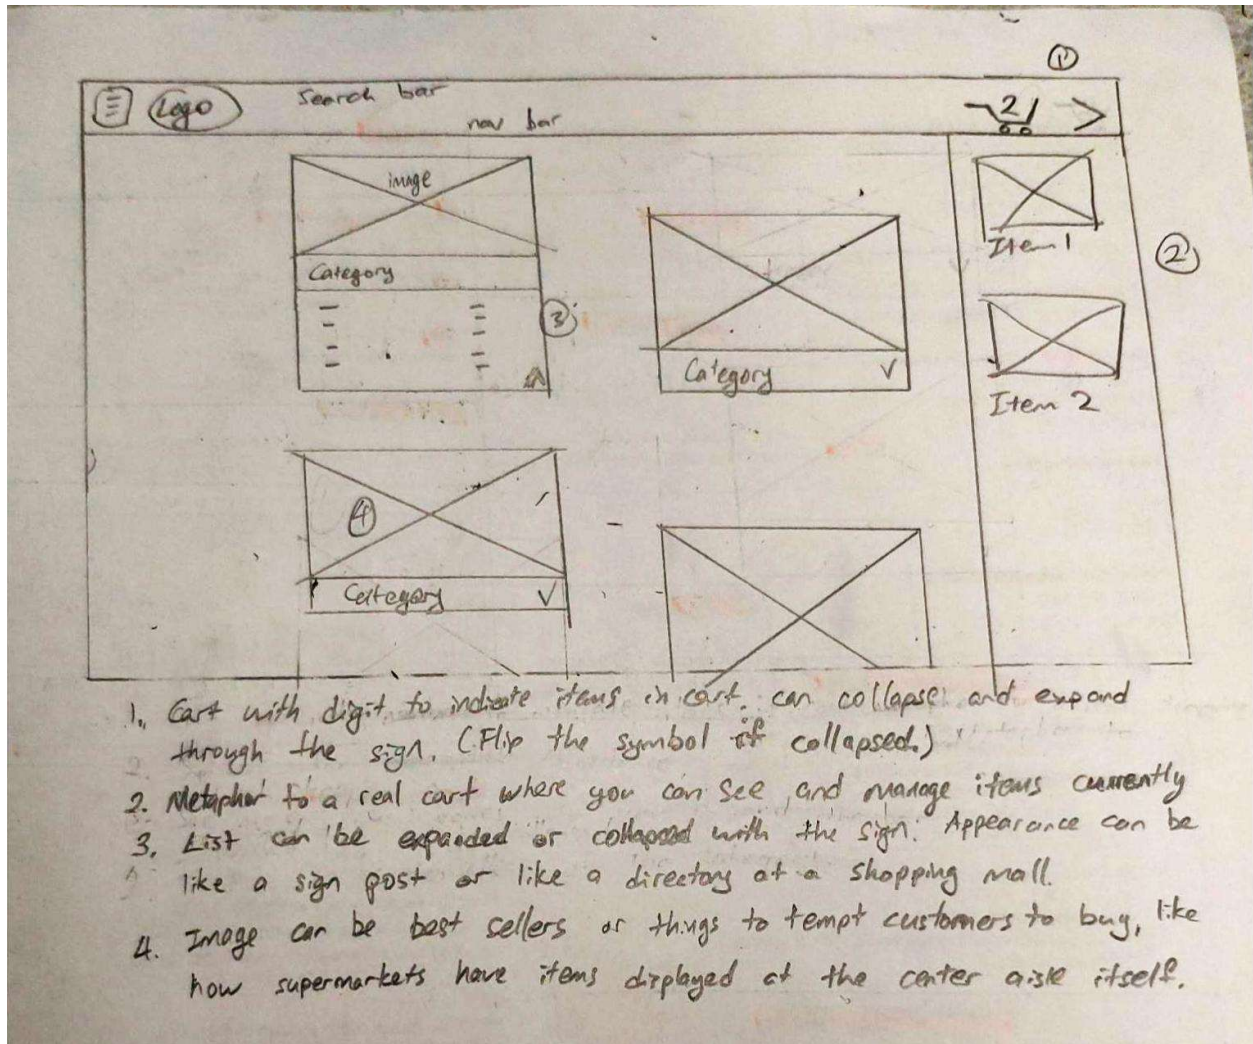 1
Logo
Search bar
nav bar
2
image
Category
3
Category
Item 1
2
Item 2
4
Category
1. Cart with digit to indicate items in cart. can collapse and expand
through the sign. (Flip the symbol if collapsed.)
2. Metaphor to a real cart where you can see and manage items currently
3. List can be expanded or collapsed with the sign. Appearance can be
like a sign post or like a directory at a shopping mall.
4. Image can be best sellers or things to tempt customers to buy, like
how supermarkets have items displayed at the center aisle itself.